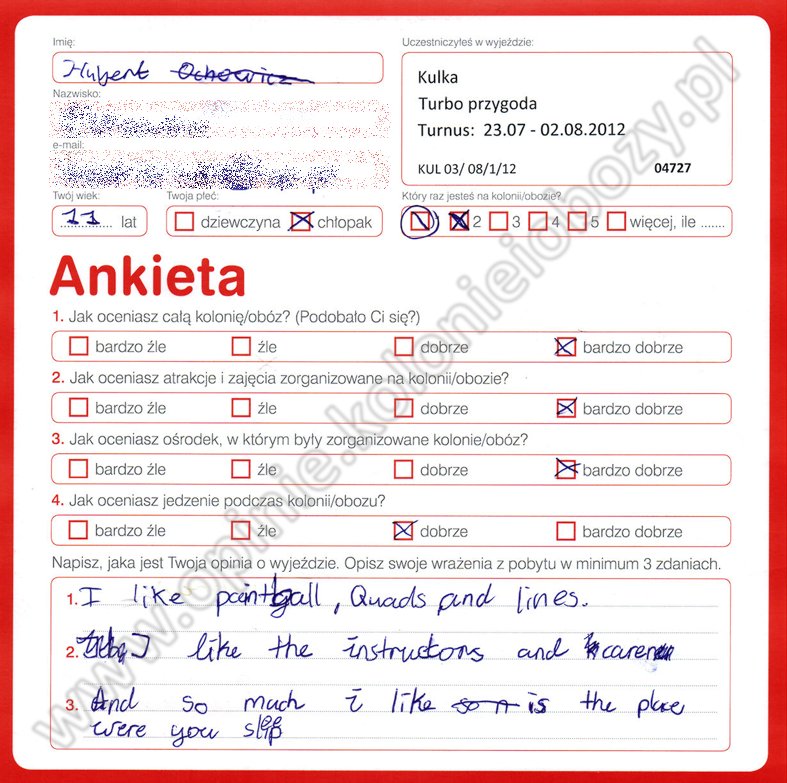 Imię:
Hubert
Nazwisko:
e-mail:
Twój wiek:
11 lat
Twoja płeć:
dziewczyna chłopak
Uczestniczyłeś w wyjeździe:
Kulka
Turbo przygoda
Turnus: 23.07 - 02.08.2012
KUL 03/ 08/1/12 04727
Który raz jesteś na kolonii/obozie?
1 2 3 4 5 więcej, ile .......
Ankieta
1. Jak oceniasz całą kolonię/obóz? (Podobało Ci się?)
bardzo źle źle dobrze bardzo dobrze
2. Jak oceniasz atrakcje i zajęcia zorganizowane na kolonii/obozie?
bardzo źle źle dobrze bardzo dobrze
3. Jak oceniasz ośrodek, w którym były zorganizowane kolonie/obóz?
bardzo źle źle dobrze bardzo dobrze
4. Jak oceniasz jedzenie podczas kolonii/obozu?
bardzo źle źle dobrze bardzo dobrze
Napisz, jaka jest Twoja opinia o wyjeździe. Opisz swoje wrażenia z pobytu w minimum 3 zdaniach.
1. I like paintball, Quads and lines.
2. I like the instructors and
3. And so much i like is the place
were you sleep
www.opinie.kolonieiobozy.pl